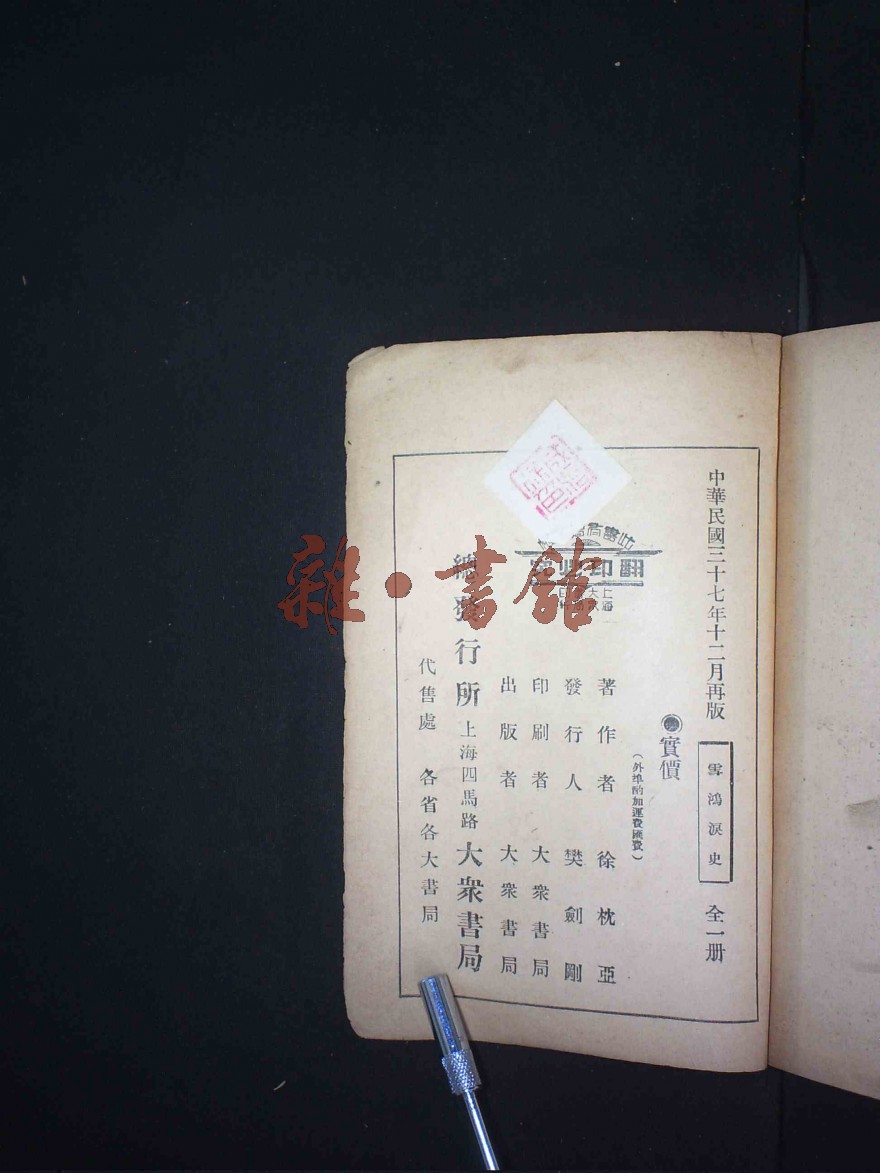 中華民國三十七年十二月再版
雪鴻淚史
全一册
實價
(外埠酌加運費匯費)
著作者 徐枕亞
發行人 樊劍剛
印刷者 大衆書局
出版者 大衆書局
總發行所 上海四馬路 大衆書局
代售處 各省各大書局
此書有
翻印必究
上海大衆
雜·書館